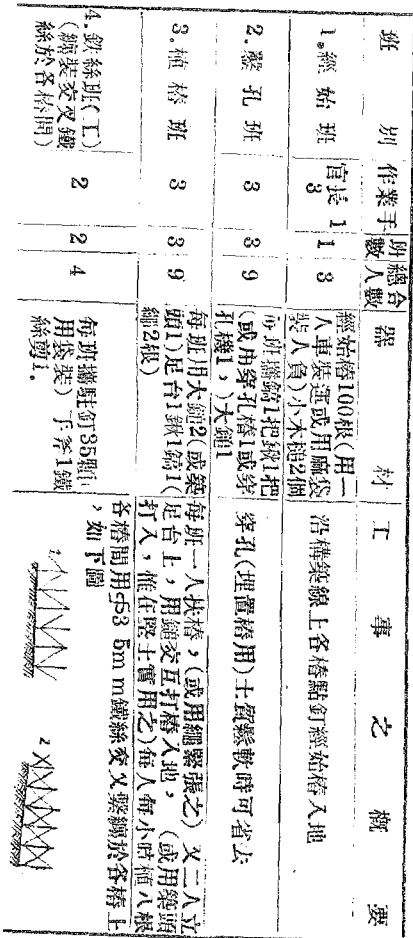 班別 作業手 附數 總合人數 器材 工事之概要
1.經始班 官長1 3 1 3 經始樁100根(用一人車裝運或用麻袋裝人負)小木槌2個 沿構築線上各樁點釘經始樁入地
2.鑿孔班 3 3 9 每班攜鎬1把鍬1把(或用穿孔樁1或穿孔機1,)大鎚1 穿孔(埋置樁用)土質鬆軟時可省去
3.植樁班 3 3 9 每班用大鎚2(或築頭1)足台1鍬1鎬1(繩2根) 每班一人扶樁,(或用繩緊張之)又二人立足台上,用鎚交互打樁入地,(或用築頭打入,惟在堅土質用之)每人每小時植八根
4.鉄絲班(工)(編裝交叉鐵絲於各樁間) 2 2 4 每班攜駐釘35顆(用袋裝)手斧1鐵絲剪1. 各樁間用φ3 5mm鐵絲交叉緊綢於各樁上,如下圖
1
2